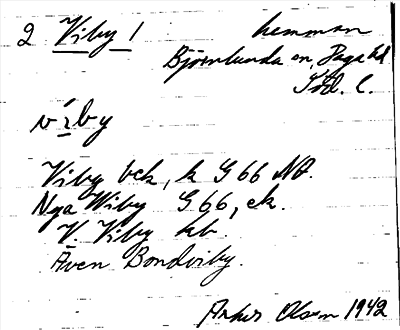 2 Viby 1 hemman
Björnlunda sn, Daga hd
Söd. l.
víby
Viby bek, k G 66 NO.
Nya Wiby G 66, ek.
V. Viby kb.
Även Bondviby.
Olson 1942